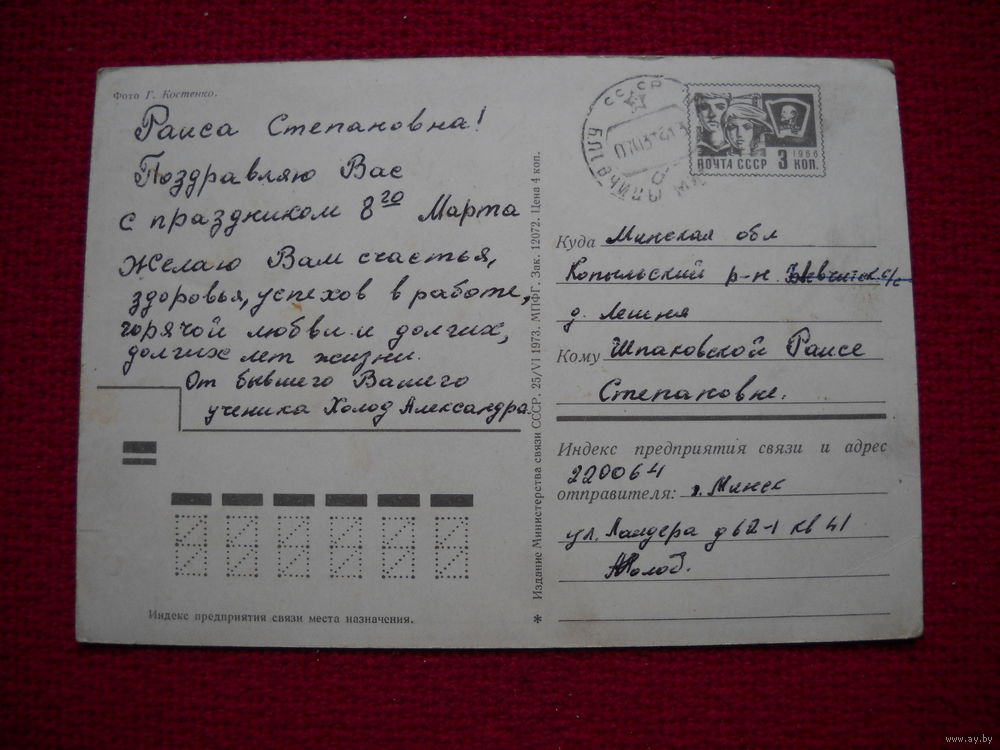 Фото Г. Костенко.
Раиса Степановна!
Поздравляю Вас
с праздником 8го Марта
Желаю Вам счастья,
здоровья, успехов в работе,
горячой любви и долгих,
долгих лет жизни.
От бывшего Вашего
ученика Холод Александра.
Индекс предприятия связи места назначения.
* Издание Министерства связи СССР. 25/VI 1973. МПФГ. Зак. 12072. Цена 4 коп.
СССР
ПОЧТА СССР 3 КОП.
1966
Куда Минская обл
Копыльский р-н. с/с
д. Лешня
Кому Шпаковской Раисе
Степановне.
Индекс предприятия связи и адрес
220064
отправителя: г. Минск
ул. Ландера д 62-1 кв 41
АХолод.
www.ay.by